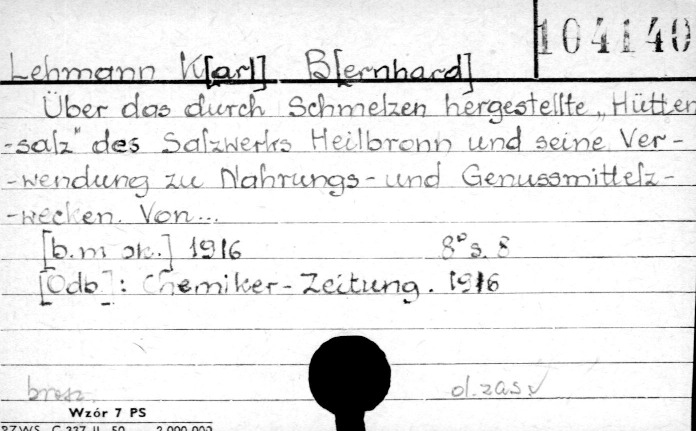 104140
Lehmann K[arl] B[ernhard]
Über das durch Schmelzen hergestellte „Hütten
-salz" des Salzwerks Heilbronn und seine Ver-
-wendung zu Nahrungs- und Genussmittelz-
-wecken. Von...
[b.m ok.] 1916 8° s. 8
[Odb]: Chemiker-Zeitung. 1916
brosz. d. zas.
Wzór 7 PS
PZWS C 337 II. 50 2.000.000